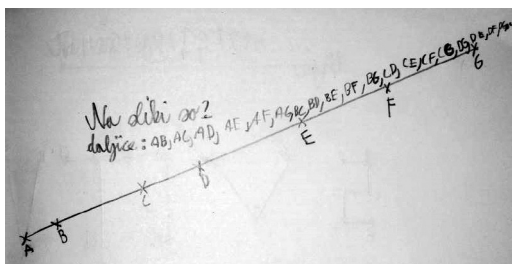 Na sliki so?
daljice: AB, AC, AD, AE, AF, AG, BC, BD, BE, BF, BG, CD, CE, CF, CG, DE, DF
A
B
C
D
E
F
G